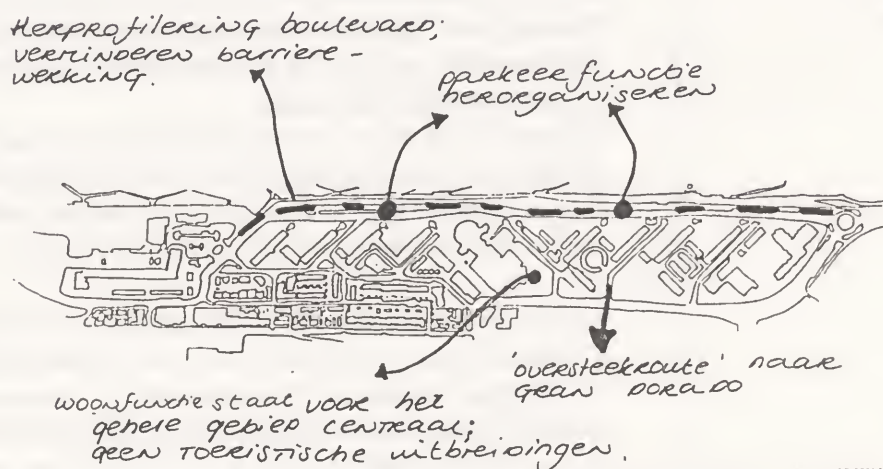 Herprofilering boulevard;
verminderen barriere -
werking.
parkeerfunctie
herorganiseren
'oversteekroute' naar
Gran Dorado
woonfunctie staat voor het
gehele gebied centraal;
geen toeristische uitbreidingen.